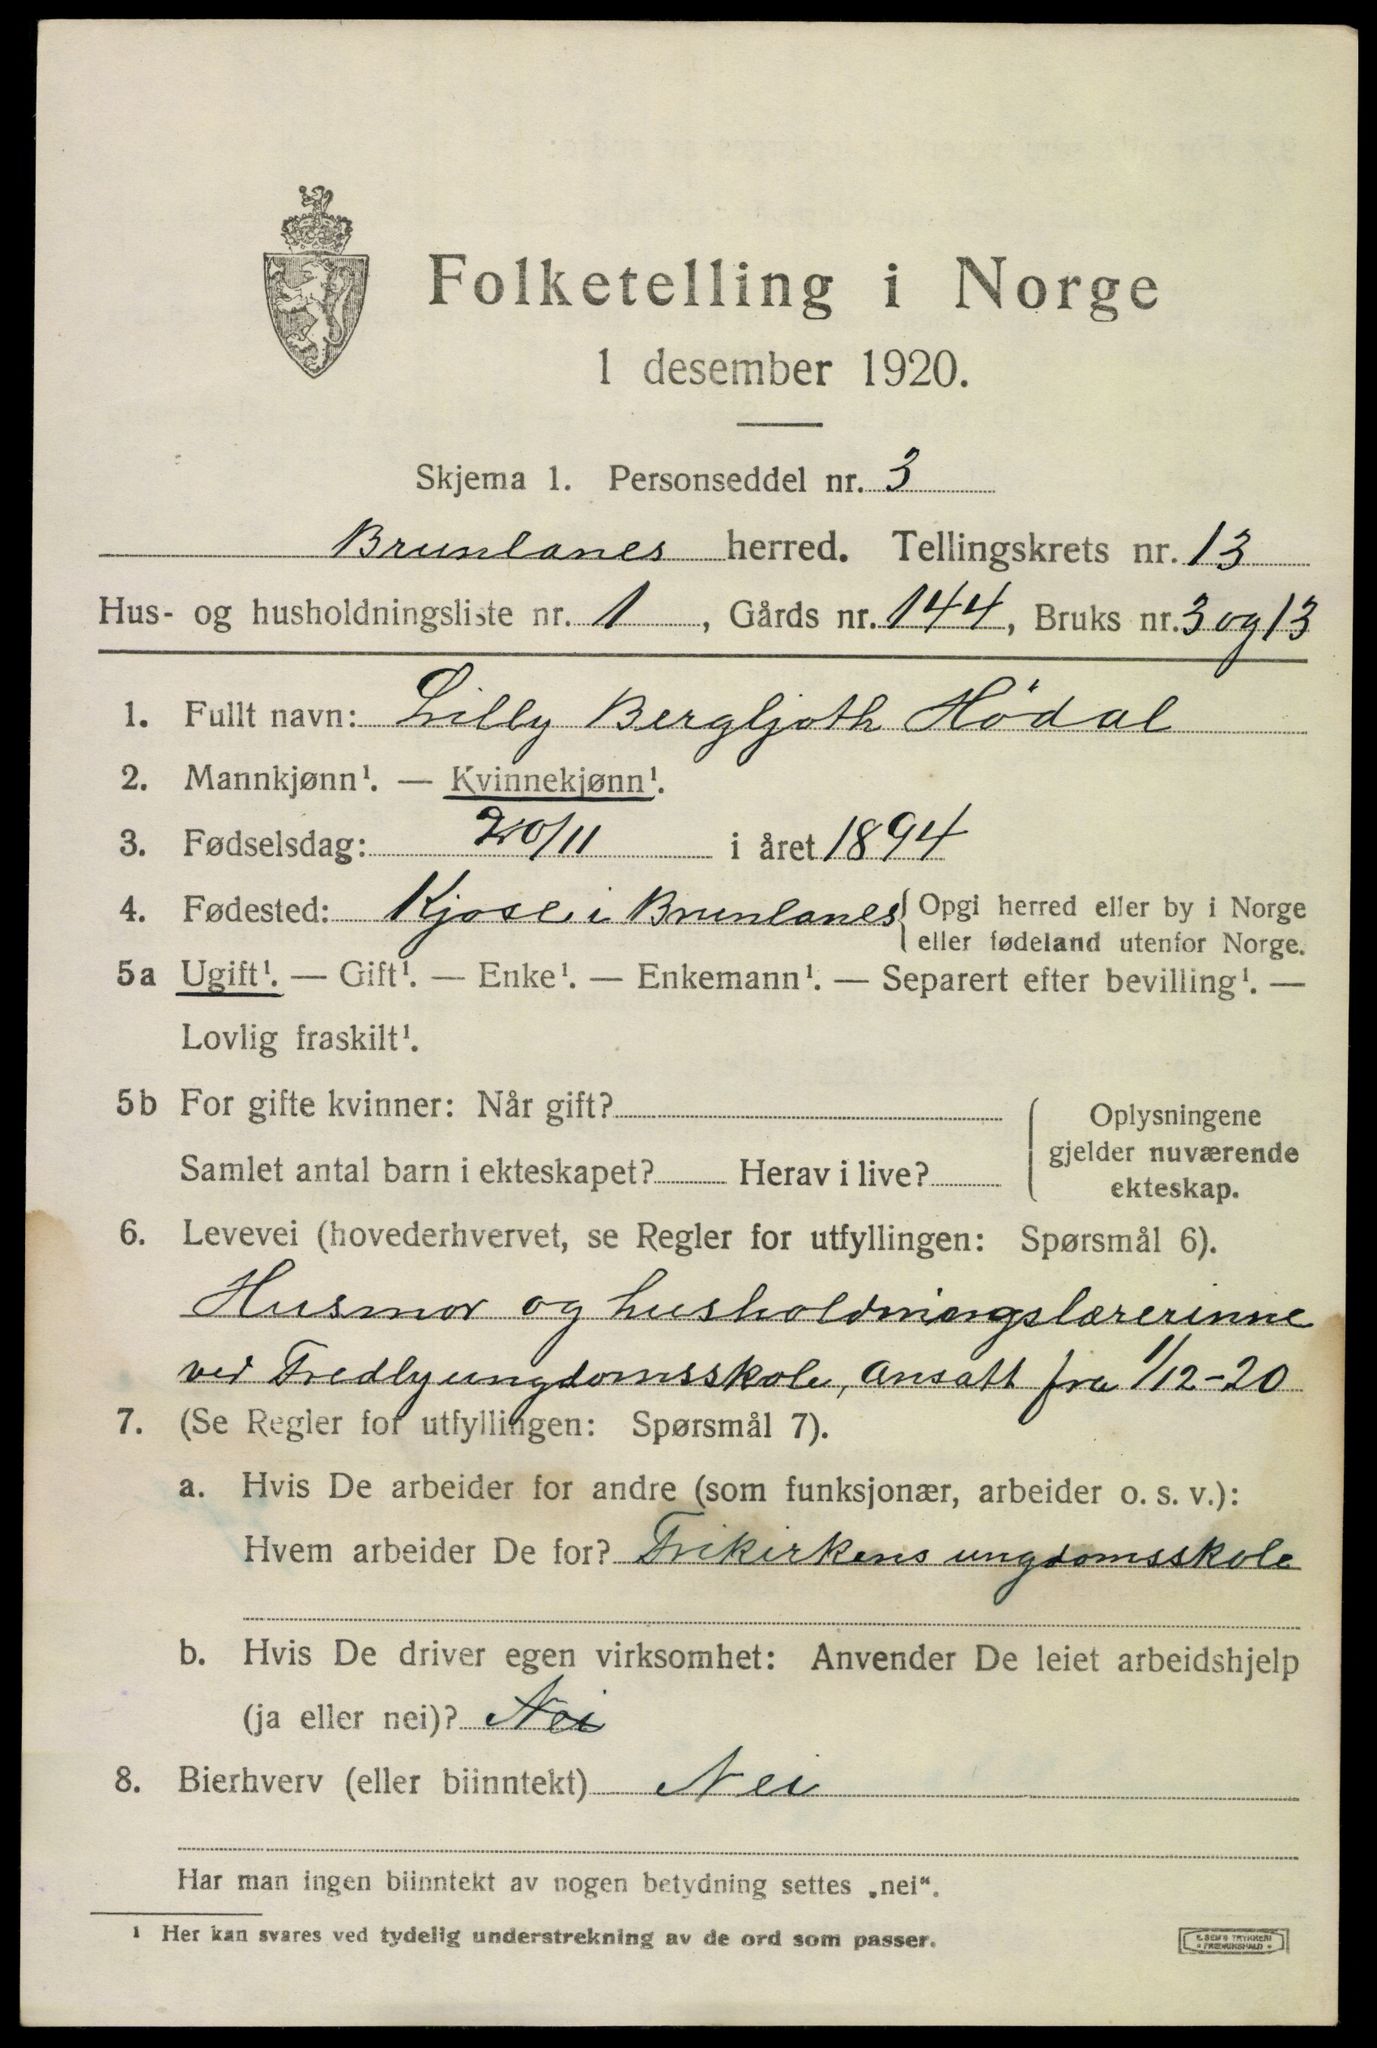 Folketelling i Norge
1 desember 1920.
Skjema 1. Personseddel nr. 3
Brunlanes herred. Tellingskrets nr. 13
Hus- og husholdningsliste nr. 1, Gårds nr. 144, Bruks nr. 3 og 13
1. Fullt navn: Lilly Bergljoth Hödal
2. Mannkjønn¹. — Kvinnekjønn¹.
3. Fødselsdag: 20/11 i året 1894
4. Fødested: Kjose i Brunlanes { Opgi herred eller by i Norge
eller fødeland utenfor Norge.
5a Ugift¹. — Gift¹. — Enke¹. — Enkemann¹. — Separert efter bevilling¹. —
Lovlig fraskilt¹.
5b For gifte kvinner: Når gift?
Samlet antal barn i ekteskapet? Herav i live?
Oplysningene
gjelder nuværende
ekteskap.
6. Levevei (hovederhvervet, se Regler for utfyllingen: Spørsmål 6).
Husmor og husholdningslærerinne
ved Fredly ungdomsskole, ansatt fra 1/12-20
7. (Se Regler for utfyllingen: Spørsmål 7).
a. Hvis De arbeider for andre (som funksjonær, arbeider o. s. v.):
Hvem arbeider De for? Frikirkens ungdomsskole
b. Hvis De driver egen virksomhet: Anvender De leiet arbeidshjelp
(ja eller nei)? Nei
8. Bierhverv (eller biinntekt) Nei
Har man ingen biinntekt av nogen betydning settes „nei“.
¹ Her kan svares ved tydelig understrekning av de ord som passer.
E. SEM'S TRYKKERI
FREDRIKSHALD